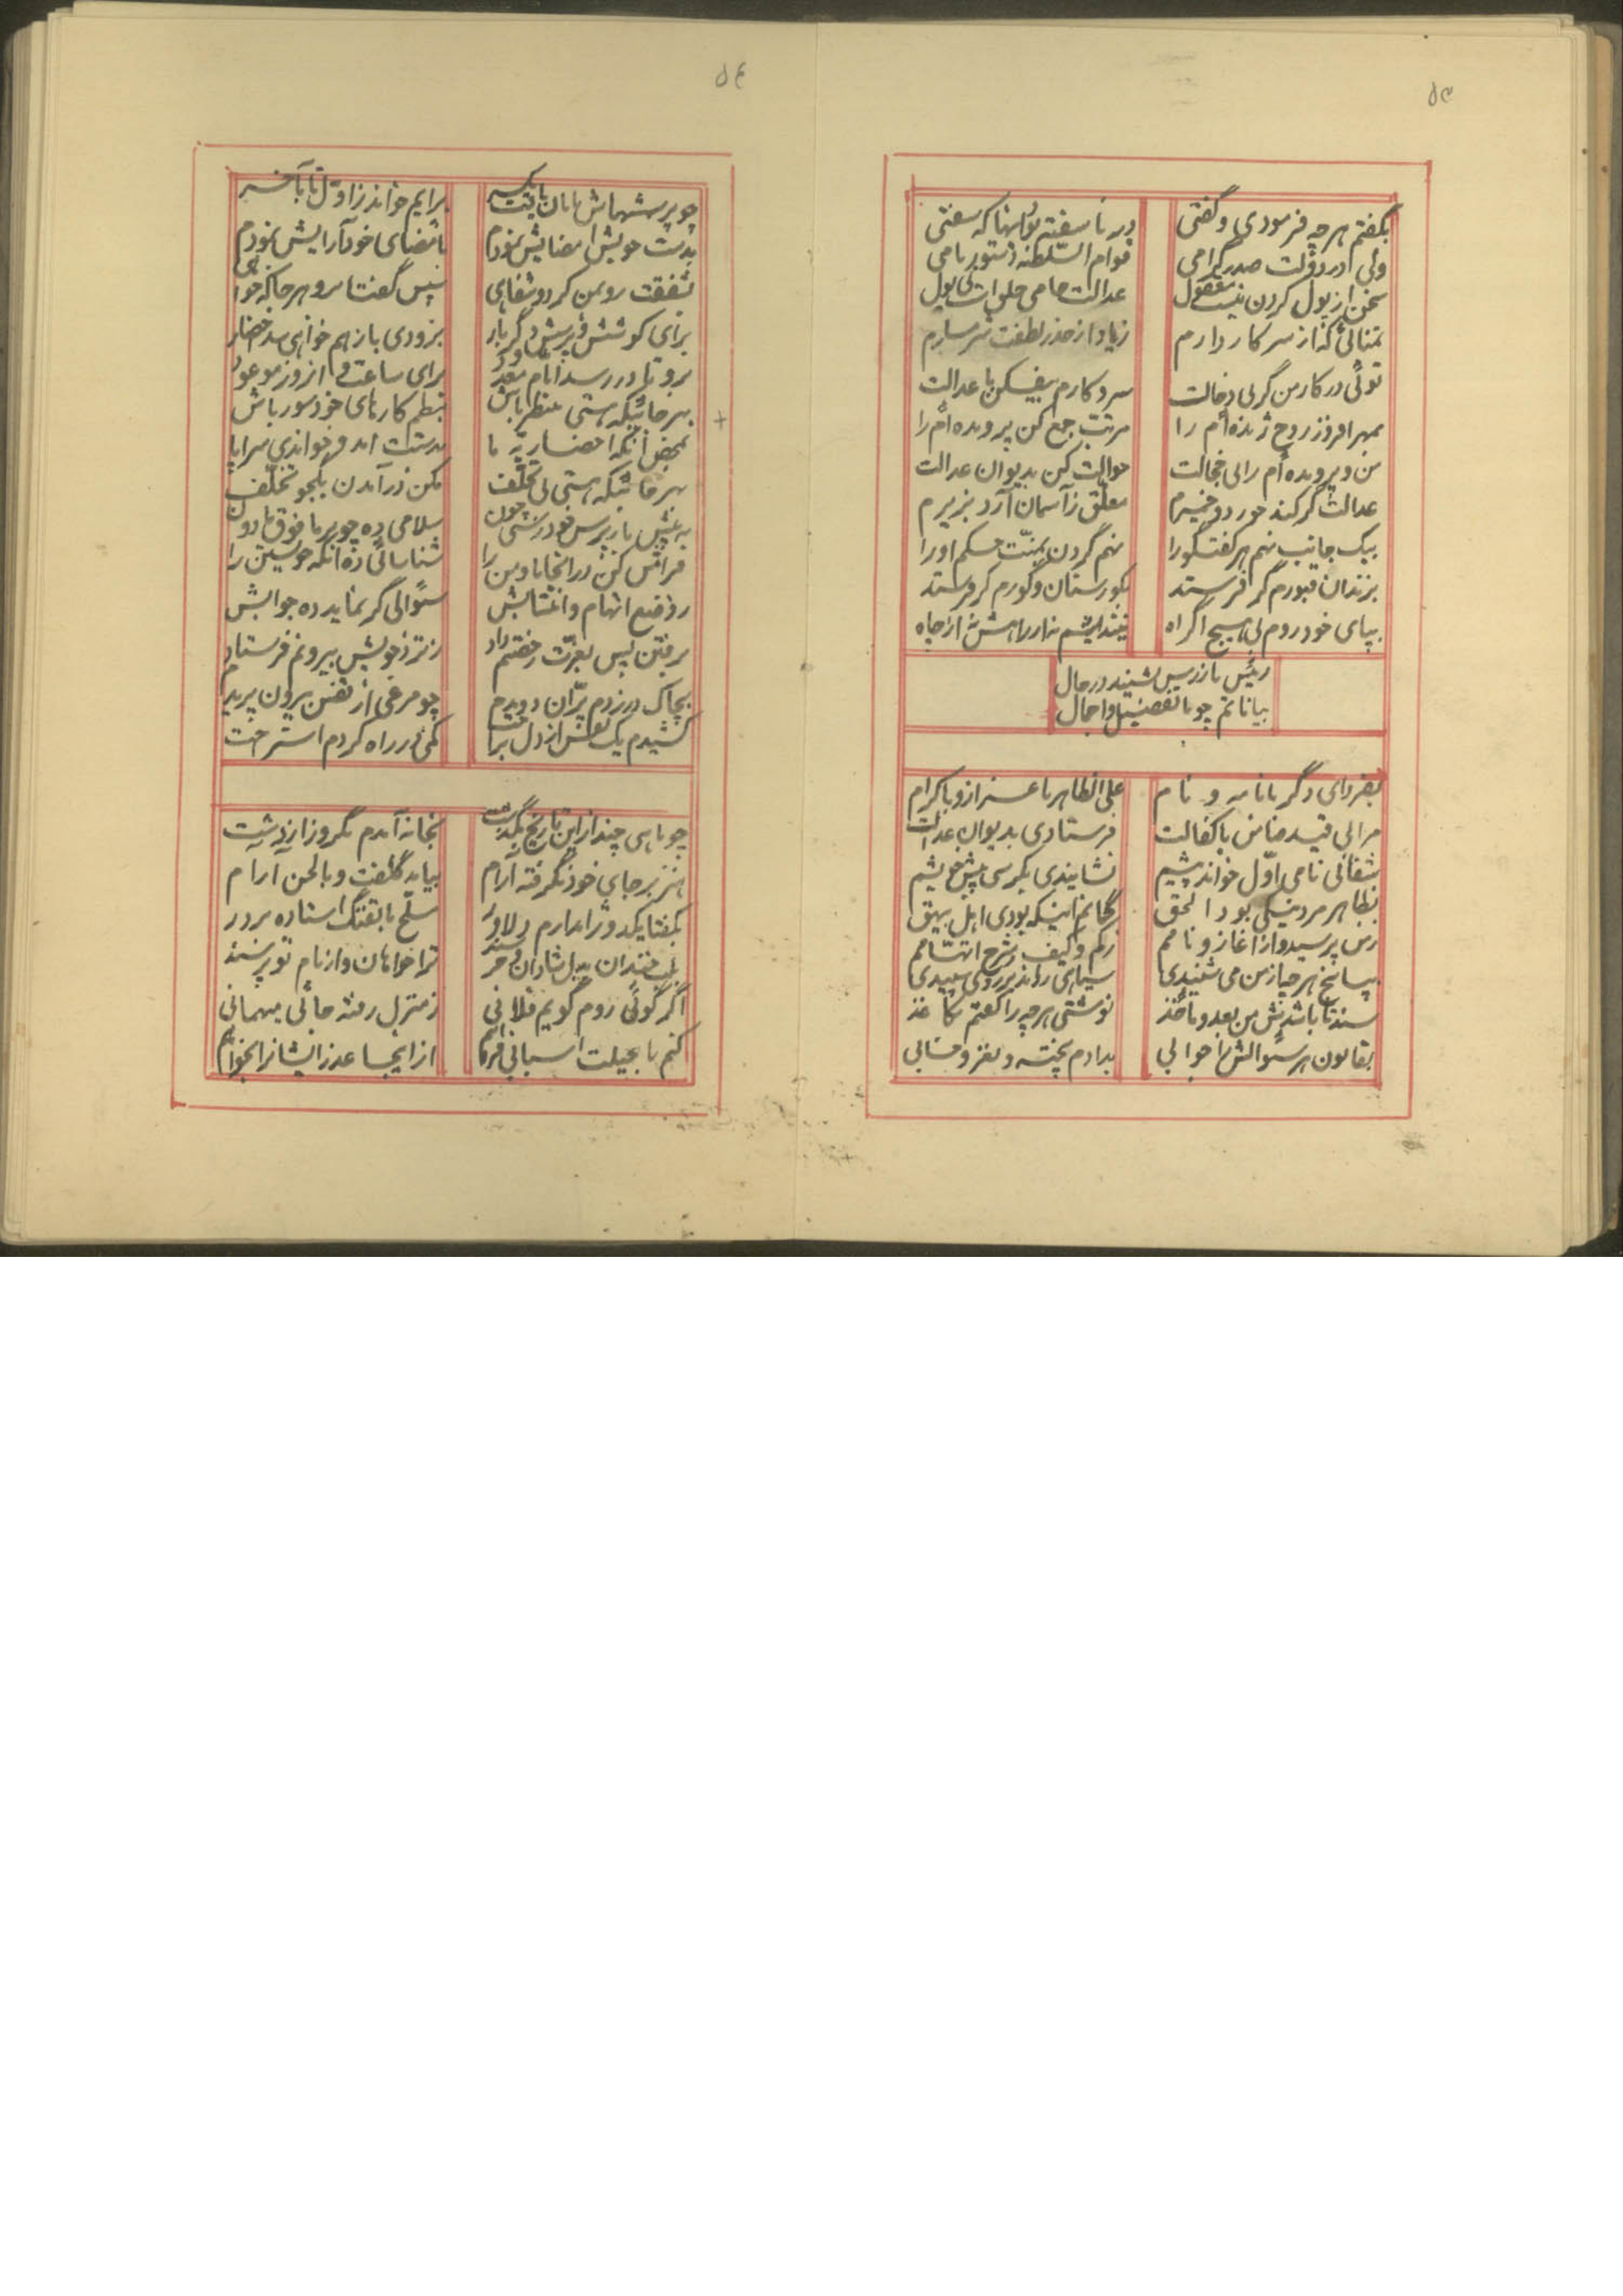 ۵۳
بگفتم هرچه فرمودی و گفتی
در ناسفته بود اینها که سفتی
ولی در دولت صدر گرامی
قوام السّلطنه دستور نامی
سخن از پول کردن نیست معقول
عدالت حامی خلق است بی پول
تمنائی که از سرکار دارم
زیاد از حد ز لطفت شرمسارم
توئی در کار من گر بی دخالت
سر و کارم بیفکن با عدالت
بمهر افروز روح زنده‌ام را
مرتب جمع کن پرونده‌ام را
من و پرونده‌ام را بی خجالت
حوالت کن بدیوان عدالت
عدالت گر کند خورد و خمیرم
معلّق ز آسمان آرد بزیرم
بیک جانب نهم هر گفتگو را
نهم گردن بمنّت حکم او را
بزندان قبورم گر فرستد
بگورستان و گورم گر فرستد
بپای خود روم بی هیچ اکراه
نیندیشم نه از راهش نه از چاه
رئیس بازرسی بشنید در حال
بیاناتم چو با تفصیل و اجمال
بفردای دگر با نامه و نام
علی الظاهر با عزاز و با کرام
مرا بی قید ضامن با کفالت
فرستادی بدیوان عدالت
شفائی نامی اوّل خواند پیشم
نشانیدی بکرسی پیش خویشم
بظاهر مرد نیکی بود الحق
گمانم اینکه بودی اهل بیهق
ز من پرسید و از آغاز و نامم
ز کم و کیف و شرح اتهامم
بپاسخ هرچه از من می شنیدی
سیاهی راند بر روی سپیدی
سند تا باشدش من بعد و ماخذ
نوشتی هرچه را گفتم بکاغذ
بقانون هر سئوالش را جوابی
بدادم پخته و نغز و حسابی
۵۴
چو پرسشهاش پایان یافت یکسر
برایم خواند از اوّل تا بآخر
بدست خویش امضایش نمودم
بامضای خود آرایش نمودم
شفقت رو بمن کرد و شفاهی
سپس گفتا برو هرجا که خواهی
برای کوشش و پرسش دگر بار
بزودی باز هم خواهی شد احضار
برو تا در رسد ایام معدود
برای ساعت و از روز موعود
بهر جائیکه هستی منتظر باش
بنظم کارهای خود مورباش
بمحض آنکه احضاریه ما
بدستت آمد و خواندی سراپا
بهر جائیکه هستی بی تخلّف
مکن در آمدن یکجو تخلّف
به پیش بازپرس خود رسی چون
سلامی ده چو بر مافوق مادون
فرامش کن در آنجا ما و من را
شناسائی ده آنگه خویشتن را
ز وضع اتهام و اغتشاش
سئوالی گر نماید ده جوابش
برفتن پس بعزّت رخصتم داد
ز نزد خویش بیرونم فرستاد
بچابک در زدم پرّان دویدم
چو مرغی از قفس بیرون پریدم
کشیدم یک نفس از دل براحت
کمی در راه کردم استراحت
چو ماهی چند از این تاریخ بگذشت
بخانه آمدم یکروز از دشت
هنوز بر جای خود نگرفته آرام
بیامد کلفت و با لحن آرام
بگفتا یکدو ژاندارم دلاور
مسلّح با تفنگ استاده بر در
بلب خندان بدل شادان و خرسند
ترا خواهان و از نام تو پرسند
اگر گوئی روم گویم فلانی
ز منزل رفته جائی میهمانی
کنم با حیلت اسبابی فراهم
از اینجا عذر ایشانرا بخواهم